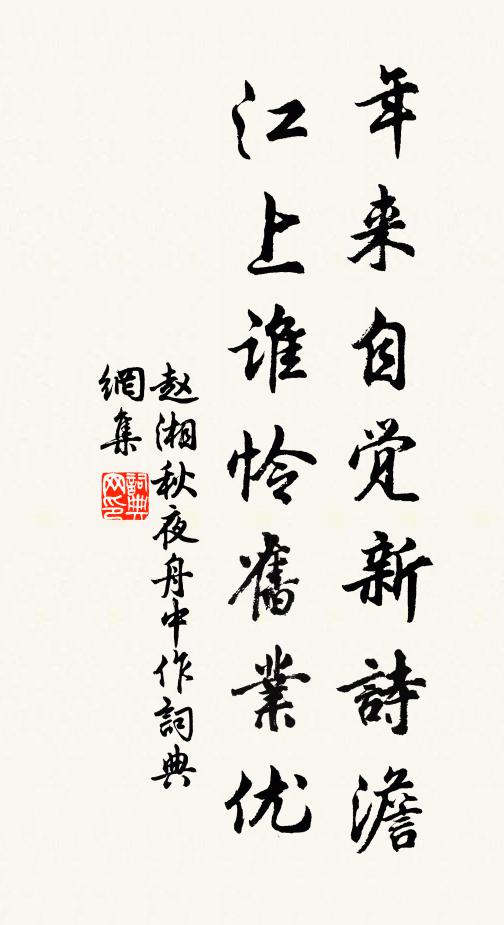 年来自觉新詩澹
江上谁怜舊業优
赵湘秋夜舟中作詞典
網集
詞典
网印